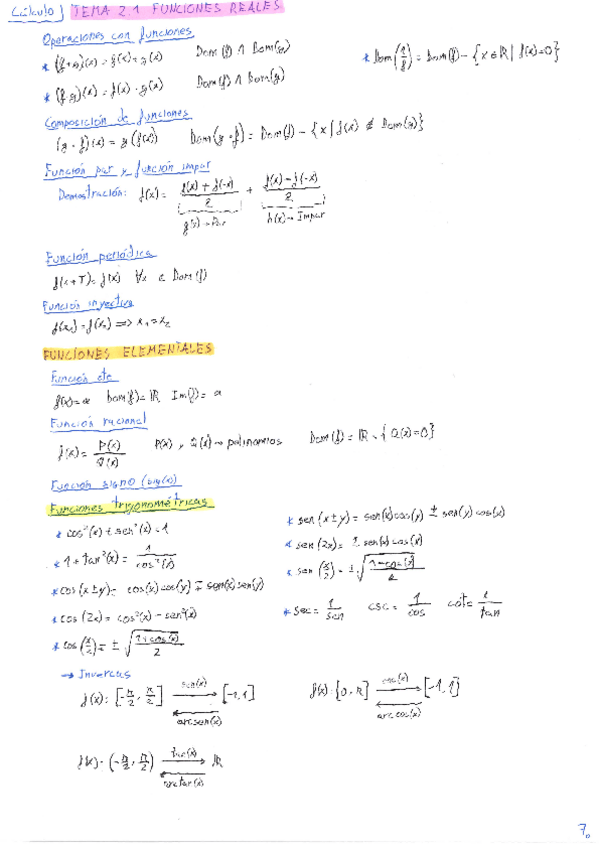 Cálculo) TEMA 2.1 FUNCIONES REALES
Operaciones con funciones
* (f+g)(x) = f(x)+g(x) Dom(f) ∧ Dom(g) * Dom(1/f) = Dom(f) - {x∈ℝ | f(x)=0}
* (f·g)(x) = f(x)·g(x) Dom(f) ∧ Dom(g)
Composición de funciones
(g·f)(x) = g(f(x)) Dom(g·f) = Dom(f) - {x / f(x) ∉ Dom(g)}
Función par y función impar
Demostración: f(x) = (f(x)+f(-x))/2 + (f(x)-f(-x))/2
g(x)→Par h(x)→Impar
Función periódica
f(x+T) = f(x) ∀x ∈ Dom(f)
Función inyectiva
f(x₁) = f(x₂) ⟹ x₁=x₂
FUNCIONES ELEMENTALES
Función cte
f(x)=a Dom(f)=ℝ Im(f)= a
Función racional
f(x) = P(x)/Q(x) P(x) y Q(x)→polinomios Dom(f) = ℝ - {Q(x)=0}
Función signo (sig(x))
Funciones trigonométricas
* cos²(x) + sen²(x) = 1 * sen(x±y) = sen(x)cos(y) ± sen(y)cos(x)
* 1 + tan²(x) = 1/cos²(x) * sen(2x) =
* cos(x±y) = cos(x)cos(y) ∓ sen(x)sen(y) * sen(x/2) = ±√((1-cos(x))/2)
* cos(2x) = cos²(x) - sen²(x) * sec = 1/sen csc = 1/cos cot = 1/tan
* cos(x/2) = ±√((1+cos(x))/2)
→ Inversas
f(x): [-π/2, π/2] sen(x) [-1,1] f(x): [0, π] cos(x) [-1,1]
arcsen(x) arccos(x)
f(x): (-π/2, π/2) tan(x) ℝ
arctan(x)
7.